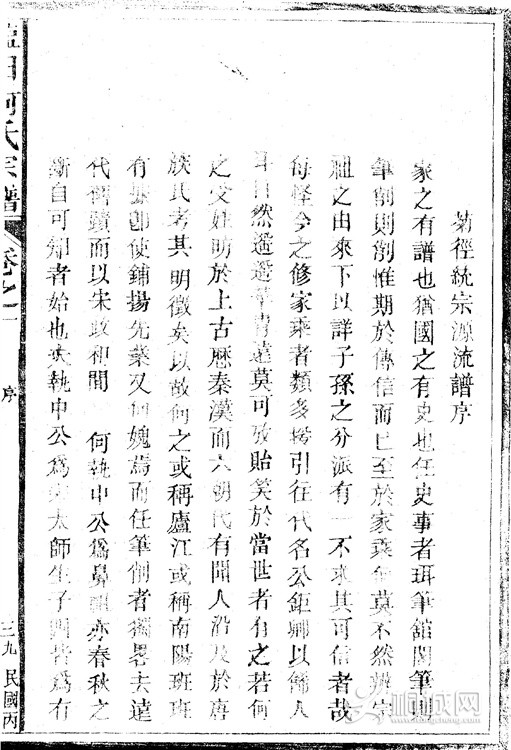 菊徑統宗源流譜序
家之有譜也猶國之有史也任史事者珥筆舘閣筆則
筆削則削惟期於傳信而已至於家乘何莫不然敘宗
祖之由來下以詳子孫之分派有一不求其可信者哉
每怪今之修家乘者類多援引往代名公鉅卿以飾人
耳目然遥遥華胄遠莫可攷貽笑於當世者有之若何
之受姓昉於上古歷秦漢而六朝代有聞人沿及於唐
族氏考其明徵矣以故何之或稱廬江或稱南陽班班
有據卽使鋪揚先業又何媿焉而任筆削者獨畧去遠
代稗蹟而以宋政和間 何執中公爲鼻祖亦春秋之
斷自可知者始也夫執中公爲宋太師生子四皆爲有
何氏宗譜
卷之一
序
三九
民國丙